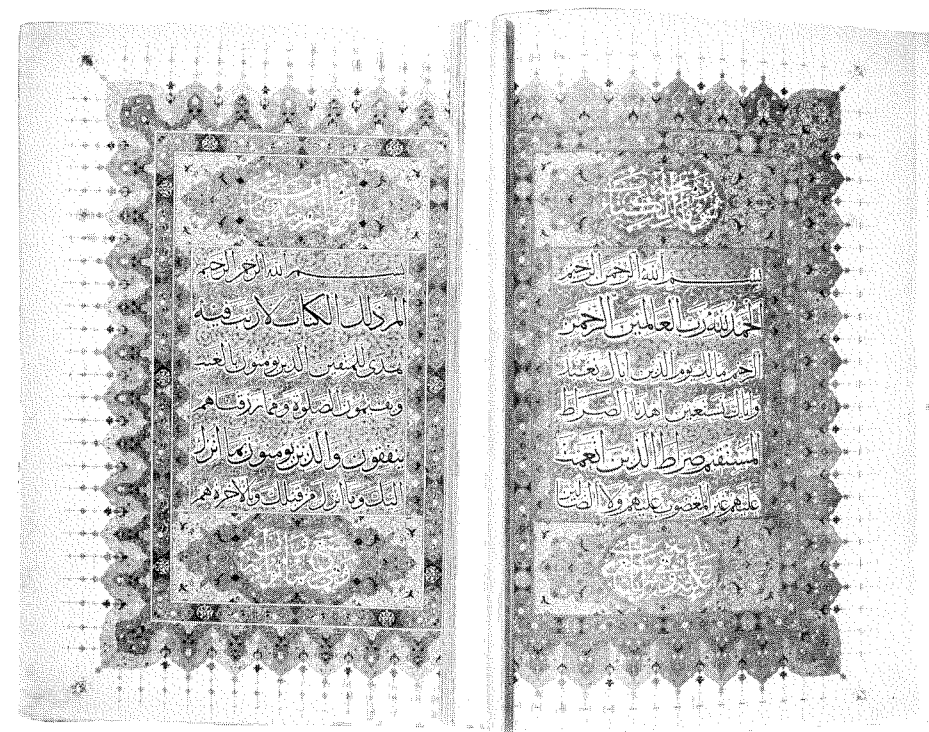 بسم الله الرحمن الرحيم
الحمد لله رب العالمين الرحمن
الرحيم مالك يوم الدين اياك نعبد
واياك نستعين اهدنا الصراط
المستقيم صراط الذين انعمت
عليهم غير المغضوب عليهم ولا الضالين
بسم الله الرحمن الرحيم
الم ذلك الكتاب لا ريب فيه
هدى للمتقين الذين يومنون بالغيب
ويقيمون الصلوة ومما رزقناهم
ينفقون والذين يومنون بما انزل
اليك وما انزل من قبلك وبالاخرة هم